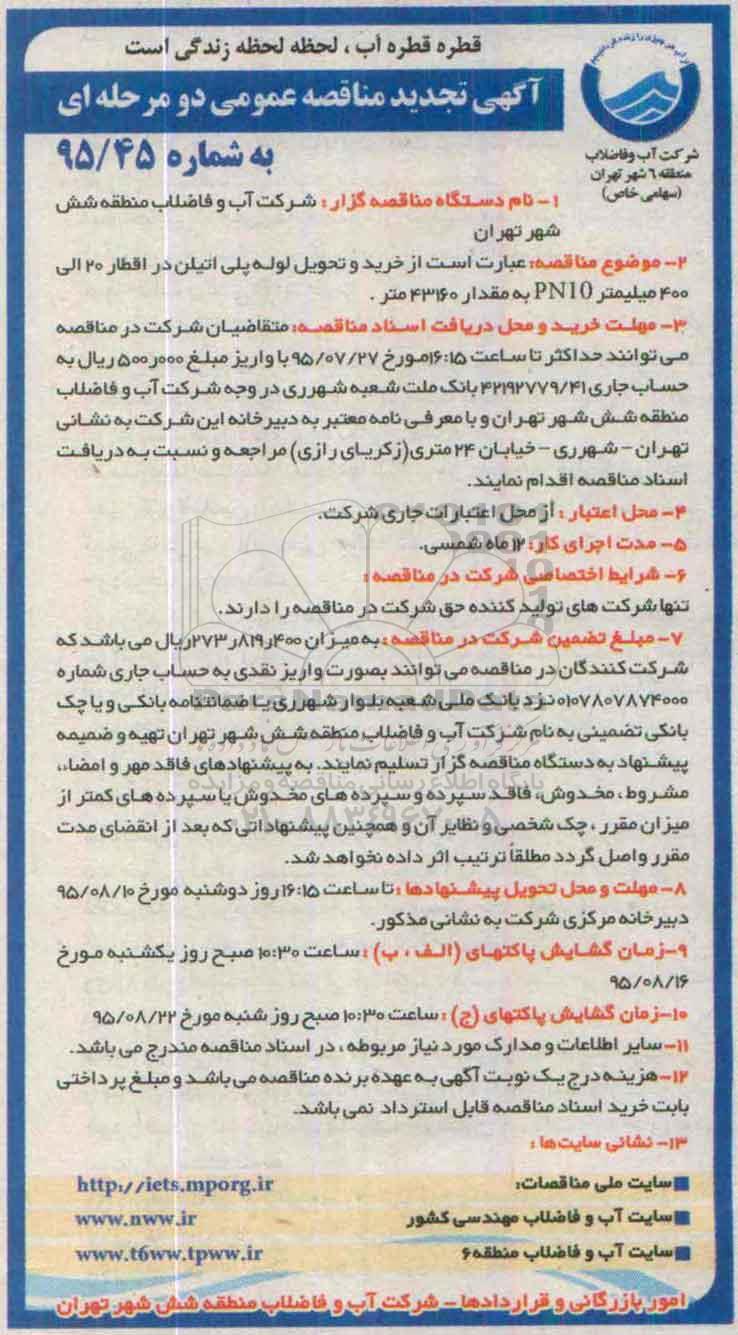 قطره قطره آب ، لحظه لحظه زندگی است
آگهی تجدید مناقصه عمومی دو مرحله ای
به شماره ۹۵/۴۵
شرکت آب وفاضلاب
منطقه ٦ شهر تهران
(سهامی خاص)
۱- نام دستگاه مناقصه گزار : شرکت آب و فاضلاب منطقه شش
شهر تهران
۲- موضوع مناقصه: عبارت است از خرید و تحویل لوله پلی اتیلن در اقطار ۲۰ الی
۴۰۰ میلیمتر PN10 به مقدار ۴۳۱۶۰ متر .
۳- مهلت خرید و محل دریافت اسناد مناقصه: متقاضیان شرکت در مناقصه
می توانند حداکثر تا ساعت ۱۶:۱۵مورخ ۹۵/۰۷/۲۷ با واریز مبلغ ۵۰۰ر۰۰۰ ریال به
حساب جاری ۴۲۱۹۲۷۷۹/۴۱ بانک ملت شعبه شهرری در وجه شرکت آب و فاضلاب
منطقه شش شهر تهران و با معرفی نامه معتبر به دبیرخانه این شرکت به نشانی
تهران - شهرری - خیابان ۲۴ متری(زکریای رازی) مراجعه و نسبت به دریافت
اسناد مناقصه اقدام نمایند.
۴- محل اعتبار : از محل اعتبارات جاری شرکت.
۵- مدت اجرای کار: ۱۲ ماه شمسی.
۶- شرایط اختصاصی شرکت در مناقصه :
تنها شرکت های تولید کننده حق شرکت در مناقصه را دارند.
۷- مبلغ تضمین شرکت در مناقصه : به میزان ۲۷۳ر۸۱۹ر۴۰۰ریال می باشد که
شرکت کنندگان در مناقصه می توانند بصورت واریز نقدی به حساب جاری شماره
۰۱۰۷۸۰۷۸۷۴۰۰۰ نزد بانک ملی شعبه بلوار شهرری یا ضمانتنامه بانکی و یا چک
بانکی تضمینی به نام شرکت آب و فاضلاب منطقه شش شهر تهران تهیه و ضمیمه
پیشنهاد به دستگاه مناقصه گزار تسلیم نمایند. به پیشنهادهای فاقد مهر و امضاء،
مشروط ، مخدوش، فاقد سپرده و سپرده های مخدوش یا سپرده های کمتر از
میزان مقرر ، چک شخصی و نظایر آن و همچنین پیشنهاداتی که بعد از انقضای مدت
مقرر واصل گردد مطلقاً ترتیب اثر داده نخواهد شد.
۸- مهلت و محل تحویل پیشنهادها : تا ساعت ۱۶:۱۵ روز دوشنبه مورخ ۹۵/۰۸/۱۰
دبیرخانه مرکزی شرکت به نشانی مذکور.
۹-زمان گشایش پاکتهای (الف ، ب) : ساعت ۱۰:۳۰ صبح روز یکشنبه مورخ
۹۵/۰۸/۱۶
۱۰-زمان گشایش پاکتهای (ج) : ساعت ۱۰:۳۰ صبح روز شنبه مورخ ۹۵/۰۸/۲۲
۱۱-سایر اطلاعات و مدارک مورد نیاز مربوطه ، در اسناد مناقصه مندرج می باشد.
۱۲-هزینه درج یک نوبت آگهی به عهده برنده مناقصه می باشد و مبلغ پرداختی
بابت خرید اسناد مناقصه قابل استرداد نمی باشد.
۱۳- نشانی سایت ها :
سایت ملی مناقصات: http://iets.mporg.ir
سایت آب و فاضلاب مهندسی کشور www.nww.ir
سایت آب و فاضلاب منطقه۶ www.t6ww.tpww.ir
امور بازرگانی و قراردادها - شرکت آب و فاضلاب منطقه شش شهر تهران